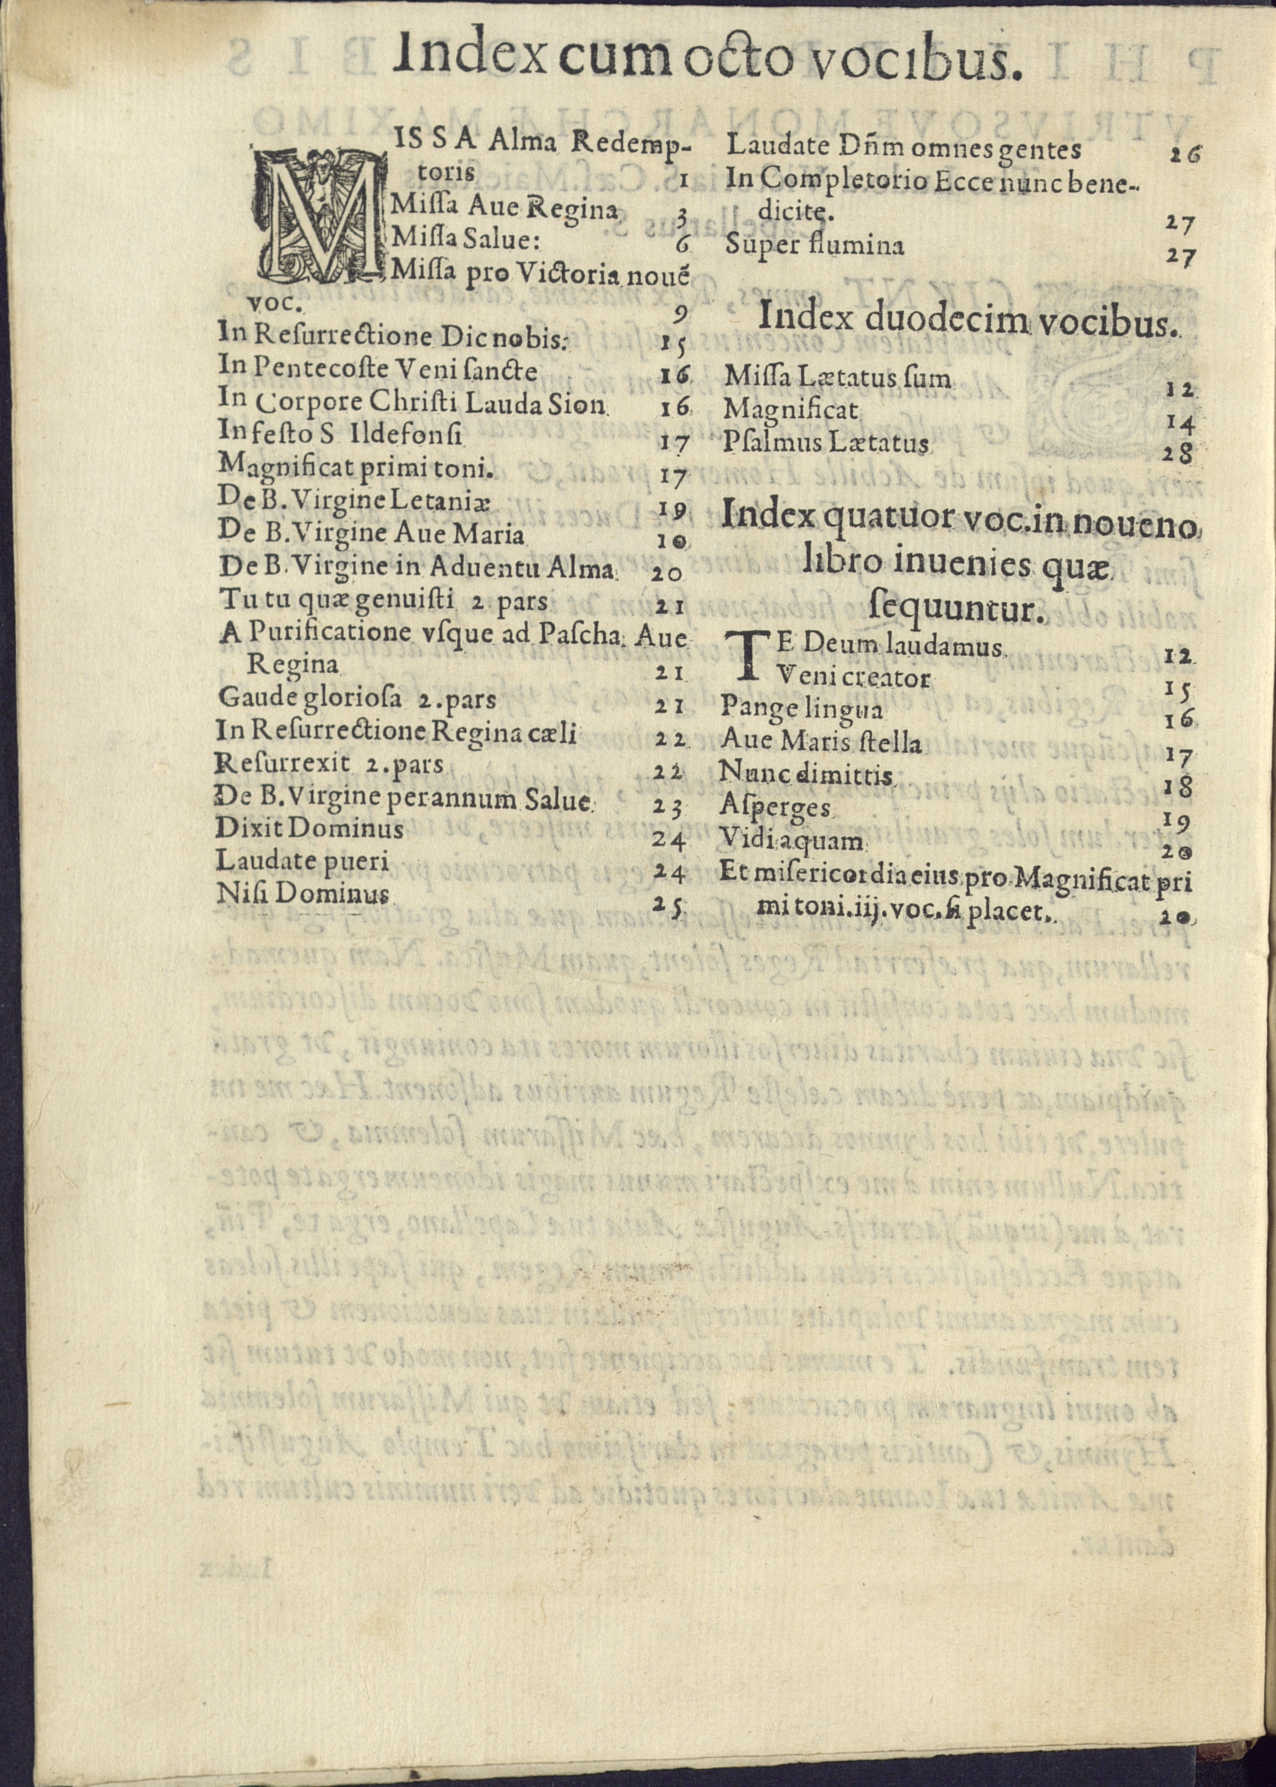 Index cum octo vocibus.
MISSA Alma Redemp-
toris 1
Miſſa Aue Regina 3
Miſſa Salue: 6
Miſſa pro Victoria nouē
voc. 9
In Reſurrectione Dic nobis: 15
In Pentecoſte Veni ſancte 16
In Corpore Chriſti Lauda Sion 16
In feſto S Ildefonſi 17
Magnificat primi toni. 17
De B. Virgine Letaniæ 19
De B. Virgine Aue Maria 10
De B. Virgine in Aduentu Alma 20
Tu tu quæ genuiſti 2 pars 21
A Purificatione vſque ad Paſcha. Aue
Regina 21
Gaude glorioſa 2. pars 21
In Reſurrectione Regina cæli 22
Reſurrexit 2. pars 22
De B. Virgine per annum Salue 23
Dixit Dominus 24
Laudate pueri 24
Niſi Dominus 25
Laudate Dñm omnes gentes 26
In Completorio Ecce nunc bene-
dicite. 27
Super flumina 27
Index duodecim vocibus.
Miſſa Lætatus ſum 12
Magnificat 14
Pſalmus Lætatus 28
Index quatuor voc. in noueno
libro inuenies quæ
ſequuntur.
TE Deum laudamus 12
Veni creator 15
Pange lingua 16
Aue Maris ſtella 17
Nunc dimittis 18
Aſperges 19
Vidi aquam 20
Et miſericordia eius pro Magnificat pri
mi toni. iij. voc. ſi placet. 20